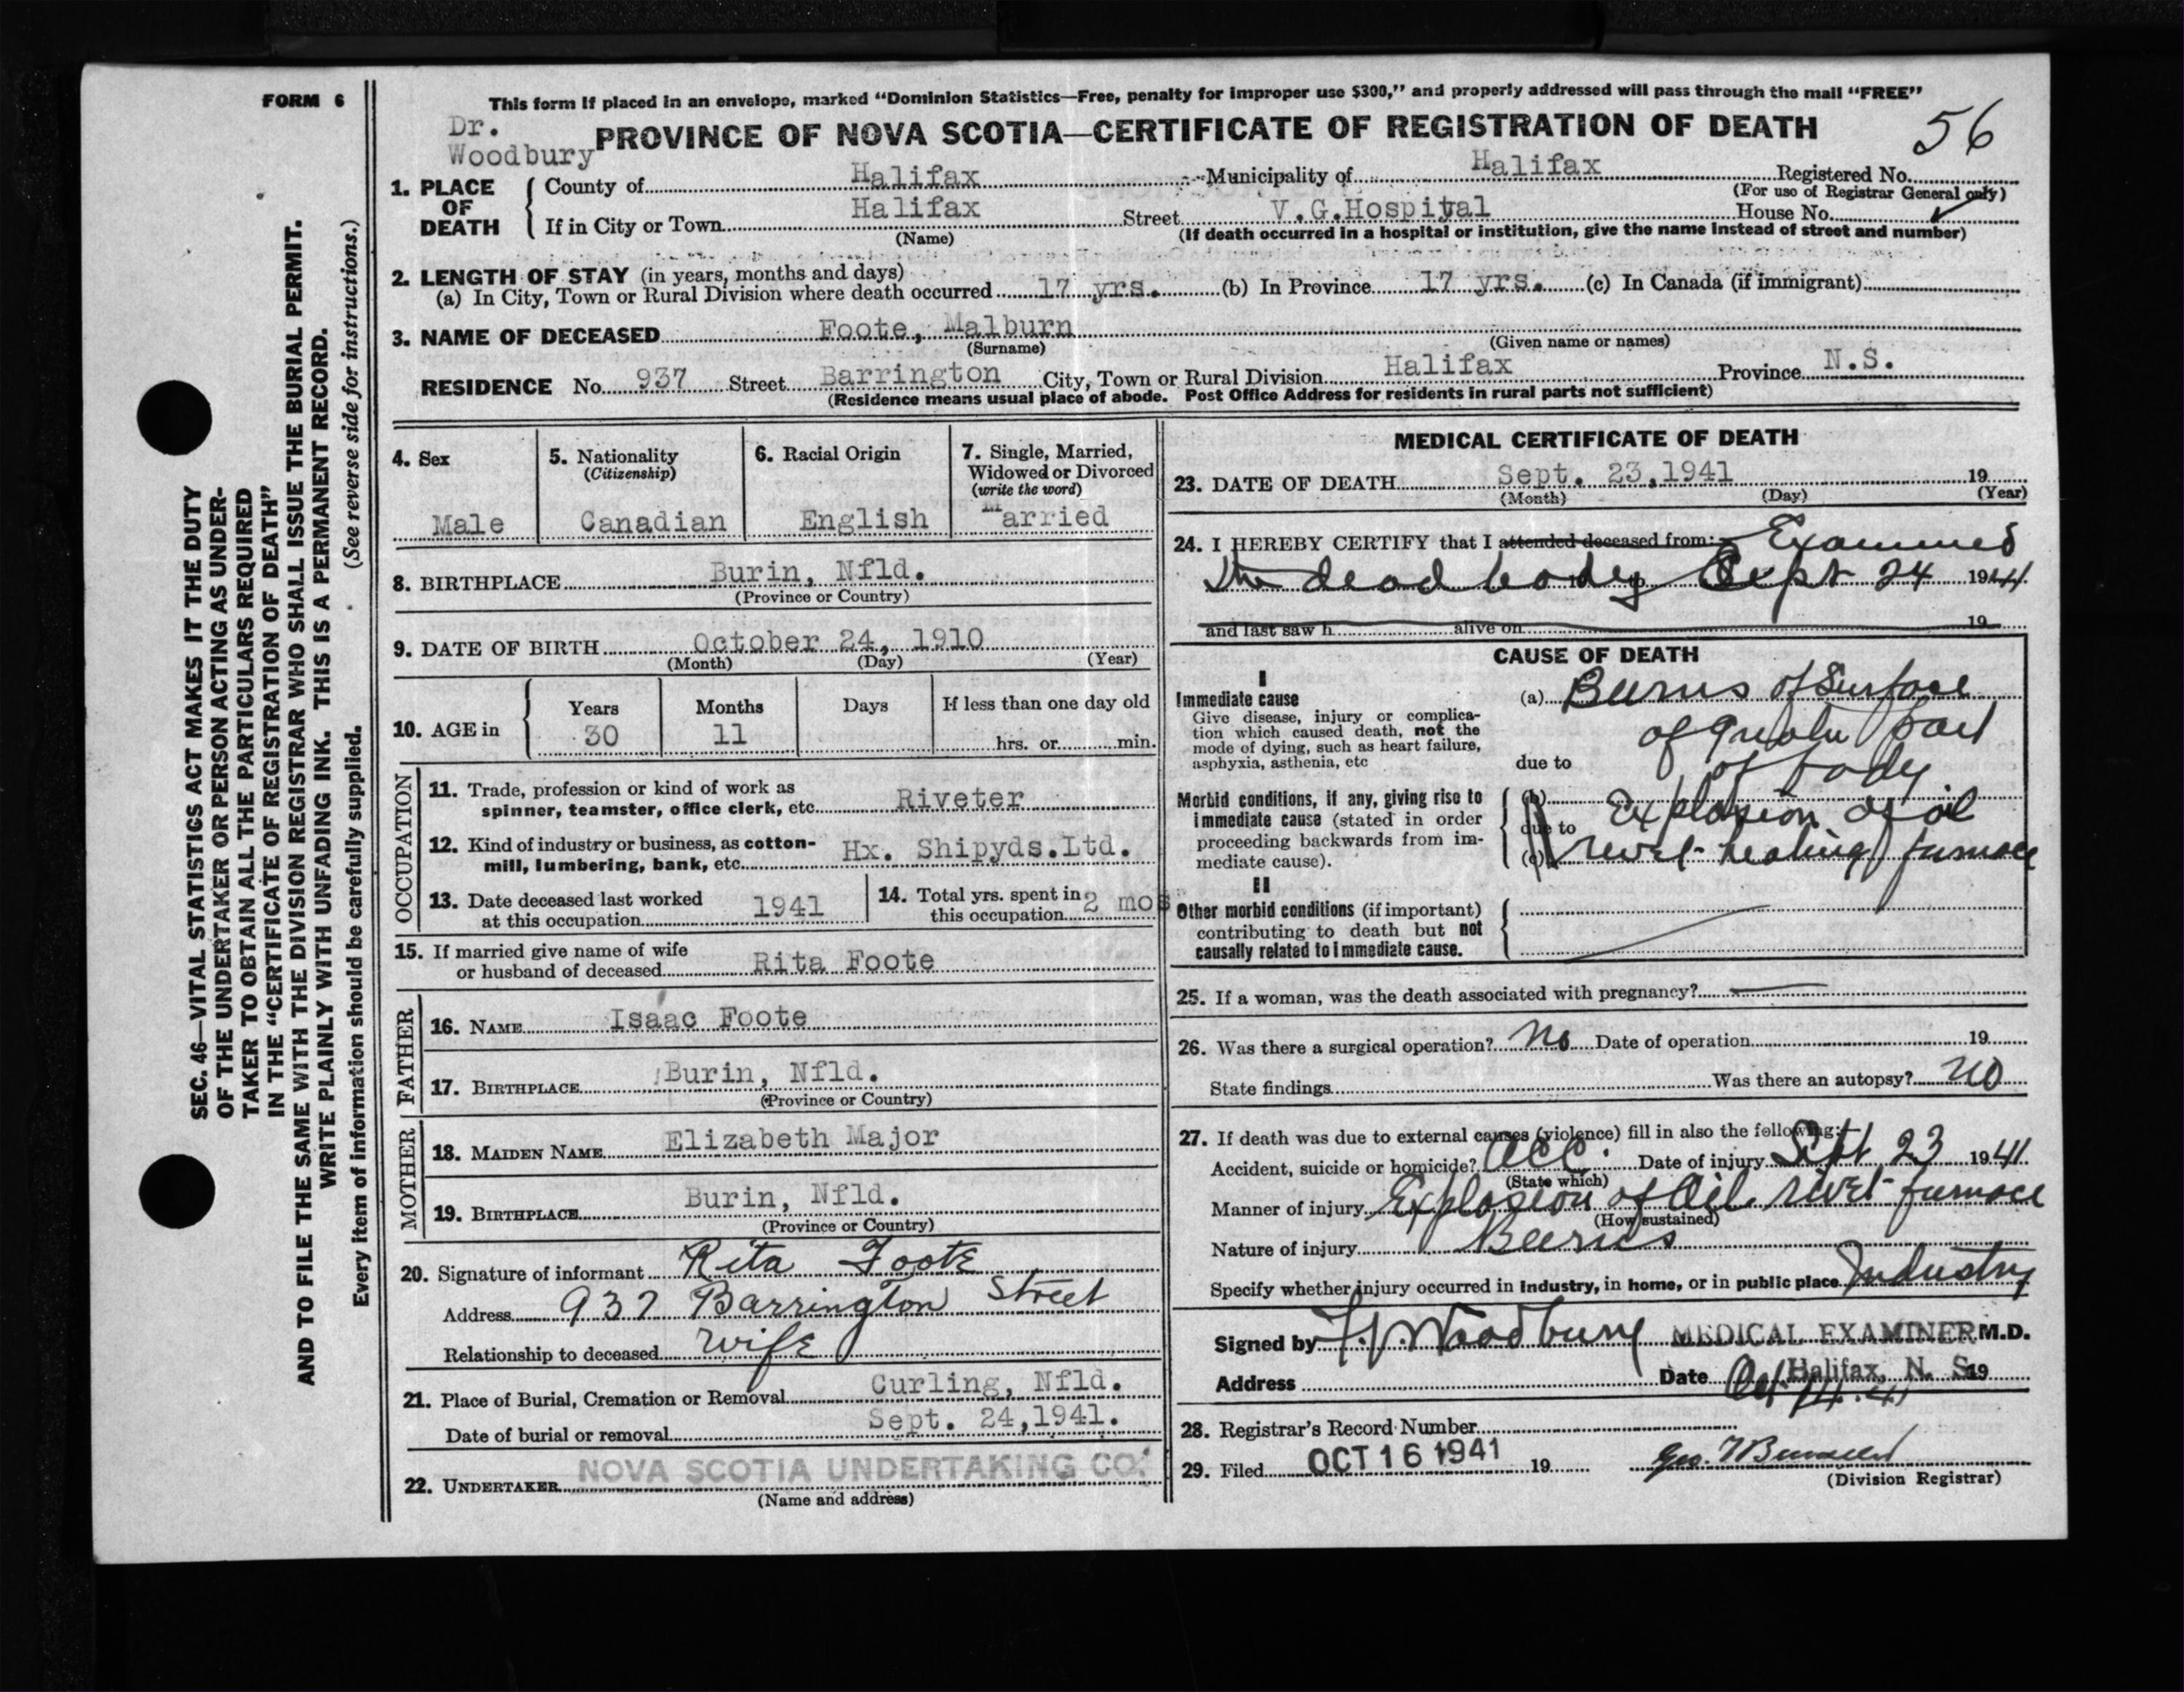 FORM 6
This form if placed in an envelope, marked "Dominion Statistics—Free, penalty for improper use $300," and properly addressed will pass through the mail "FREE"
Dr.
Woodbury
PROVINCE OF NOVA SCOTIA—CERTIFICATE OF REGISTRATION OF DEATH
56
1. PLACE OF DEATH
County of Halifax Municipality of Halifax Registered No.
(For use of Registrar General only)
If in City or Town Halifax Street V.G.Hospital House No.
(Name) (If death occurred in a hospital or institution, give the name instead of street and number)
2. LENGTH OF STAY (in years, months and days)
(a) In City, Town or Rural Division where death occurred 17 yrs. (b) In Province 17 yrs. (c) In Canada (if immigrant)
3. NAME OF DECEASED Foote, Malburn
(Surname) (Given name or names)
RESIDENCE No. 937 Street Barrington City, Town or Rural Division Halifax Province N.S.
(Residence means usual place of abode. Post Office Address for residents in rural parts not sufficient)
4. Sex
Male
5. Nationality
(Citizenship)
Canadian
6. Racial Origin
English
7. Single, Married,
Widowed or Divorced
(write the word)
Married
8. BIRTHPLACE Burin, Nfld.
(Province or Country)
9. DATE OF BIRTH October 24, 1910
(Month) (Day) (Year)
10. AGE in
Years Months Days If less than one day old
30 11 hrs. or min.
OCCUPATION
11. Trade, profession or kind of work as
spinner, teamster, office clerk, etc. Riveter
12. Kind of industry or business, as cotton-
mill, lumbering, bank, etc. Hx. Shipyds.Ltd.
13. Date deceased last worked
at this occupation 1941
14. Total yrs. spent in
this occupation 2 mos
15. If married give name of wife
or husband of deceased Rita Foote
FATHER
16. NAME Isaac Foote
17. BIRTHPLACE Burin, Nfld.
(Province or Country)
MOTHER
18. MAIDEN NAME Elizabeth Major
19. BIRTHPLACE Burin, Nfld.
(Province or Country)
20. Signature of informant Rita Foote
Address 937 Barrington Street
Relationship to deceased wife
21. Place of Burial, Cremation or Removal Curling, Nfld.
Date of burial or removal Sept. 24,1941.
22. UNDERTAKER NOVA SCOTIA UNDERTAKING CO.
(Name and address)
MEDICAL CERTIFICATE OF DEATH
23. DATE OF DEATH Sept. 23,1941 19
(Month) (Day) (Year)
24. I HEREBY CERTIFY that I attended deceased from: Examined
the dead body Sept 24 1941
and last saw h alive on 19
CAUSE OF DEATH
I
Immediate cause
Give disease, injury or complica-
tion which caused death, not the
mode of dying, such as heart failure,
asphyxia, asthenia, etc
(a) Burns of Surface
of greater part
due to of body
Morbid conditions, if any, giving rise to
immediate cause (stated in order
proceeding backwards from im-
mediate cause).
(b) Explosion of oil
due to
(c) rivet-heating furnace
II
Other morbid conditions (if important)
contributing to death but not
causally related to immediate cause.
25. If a woman, was the death associated with pregnancy?
26. Was there a surgical operation? No Date of operation 19
State findings Was there an autopsy? no
27. If death was due to external causes (violence) fill in also the following:
Accident, suicide or homicide? Acc. Date of injury Sept 23 1941
(State which)
Manner of injury Explosion of Oil rivet furnace
(How sustained)
Nature of injury Burns
Specify whether injury occurred in industry, in home, or in public place Industry
Signed by Woodbury MEDICAL EXAMINER M.D.
Address Date Oct 14.41 Halifax, N. S. 19
28. Registrar's Record Number
29. Filed OCT 16 1941 19
(Division Registrar)
SEC. 46—VITAL STATISTICS ACT MAKES IT THE DUTY
OF THE UNDERTAKER OR PERSON ACTING AS UNDER-
TAKER TO OBTAIN ALL THE PARTICULARS REQUIRED
IN THE "CERTIFICATE OF REGISTRATION OF DEATH"
AND TO FILE THE SAME WITH THE DIVISION REGISTRAR WHO SHALL ISSUE THE BURIAL PERMIT.
WRITE PLAINLY WITH UNFADING INK. THIS IS A PERMANENT RECORD.
Every item of information should be carefully supplied. (See reverse side for instructions.)